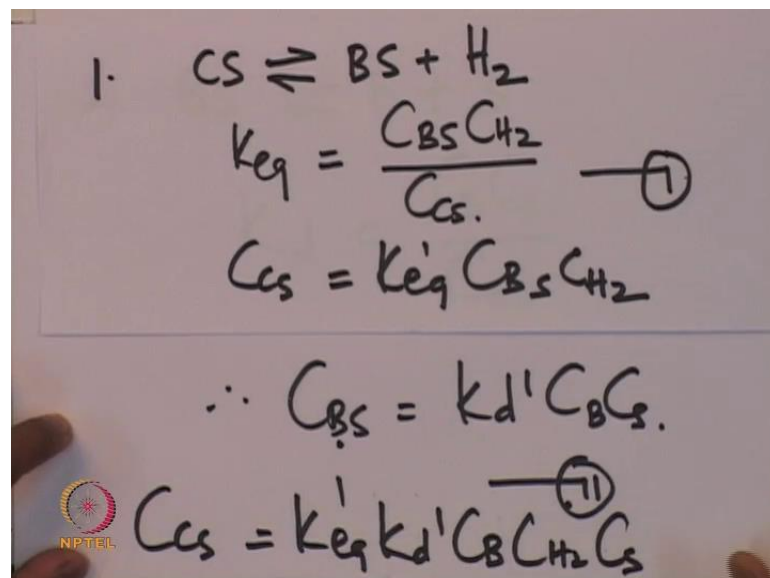 1. CS ⇌ BS + H₂
Keq = C_BS C_H₂ / C_CS. — Ⓘ
C_CS = K'eq C_BS C_H₂
∴ C_BS = Kd' C_B C_S.
— Ⓘ Ⓘ
C_CS = K'eq Kd' C_B C_H₂ C_S
NPTEL